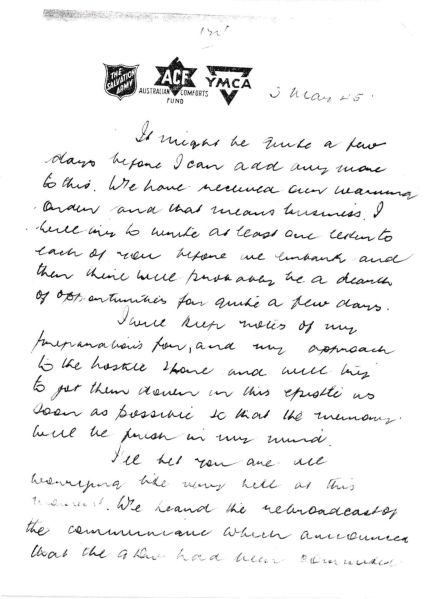 THE SALVATION ARMY
ACF
AUSTRALIAN COMFORTS FUND
YMCA
3 May 45
It might be quite a few
days before I can add any more
to this. We have received our warning
order and that means business. I
will try to write at least one letter to
each of you before we embark and
then there will probably be a dearth
of opportunities for quite a few days.
I will keep notes of my
preparations for, and my approach
to the hostile shore and will try
to jot them down in this epistle as
soon as possible so that the memory
will be fresh in my mind.
I'll bet you are all
worrying like very hell at this
moment. We heard the rebroadcast of
the communique which announced
that the show had been